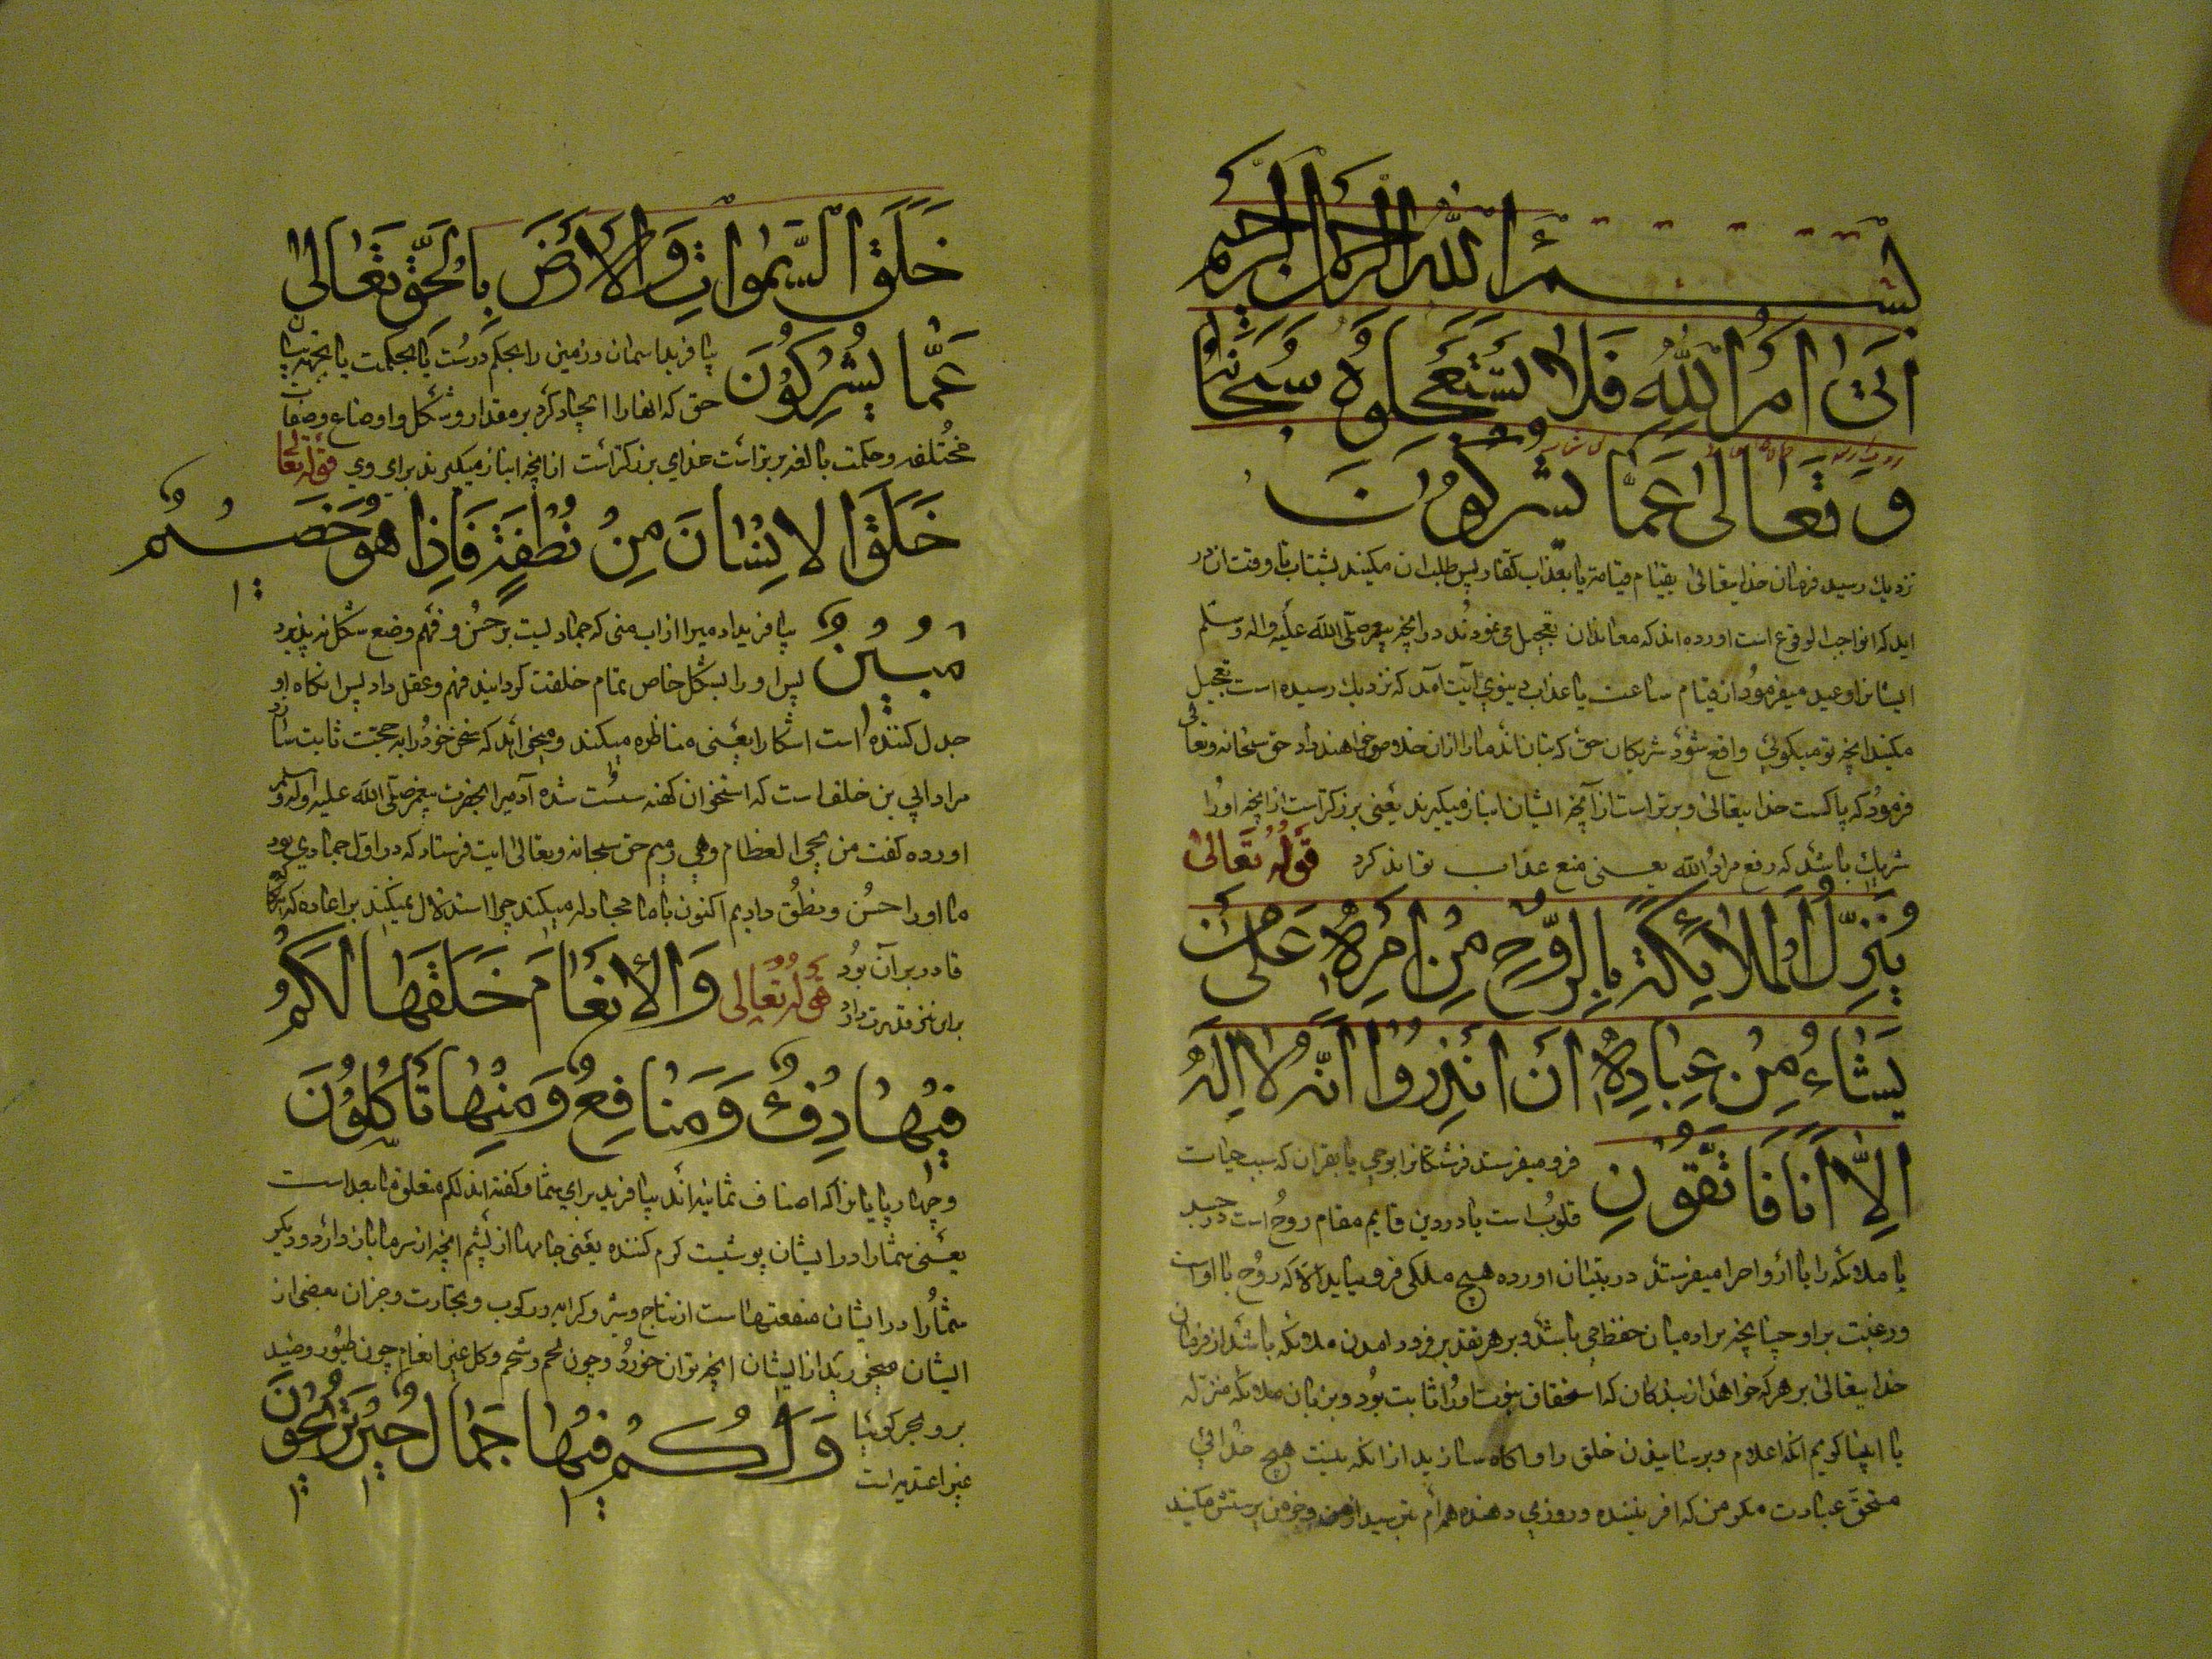 بسم الله الرحمن الرحيم
اتى امر الله فلا تستعجلوه سبحانه
و تعالى عما يشركون
نزديك رسيد فرمان خدايتعالى بقيام قيامة يا بعذاب كفار پس طلب ان مكنيد بشتاب تا وقت ان در
ايد كه انواجب الوقوع است اورده اند كه معاندان تعجيل مى نمودند در انچه پيغمبر صلى الله عليه واله وسلم
ايشانرا وعيد ميفرمود از قيام ساعت يا عذاب دينوي آيت آمد كه نزديك رسيده است تعجيل
مكنيد انچه تو ميكوئي واقع شود شريكان حق كه بتان اند مارا ازان خلاص خواهند داد حق سبحانه وتعالى
فرمود كه پاكست خدايتعالى وبرتر است از آنچه ايشان انباز ميكيرند يعنى بزركتر است از انچه اورا
شريك باشد كه رفع مراد الله يعنى منع عذاب تواند كرد قوله تعالى
ينزل الملائكة بالروح من امره على من
يشاء من عباده ان انذروا انه لا اله
الا انا فاتقون فرو ميفرستد فرشتكانرا بوحي يا بقران كه سبب حيات
قلوب است يا در دين قايم مقام روح است در جسد
يا ملائكه را با ارواحرا ميفرستد در بتيان اورده هيچ ملكى فرو نيايد الا كه روح با اوست
ورقيب بر او چنانچه بر ادميان حفظه مي باشد وبر هر تقدير فرود امدن ملائكه باشد از فرمان
خدايتعالى بر هر كه خواهد از بندكان كه استحقاق نبوت اورا ثابت بود وبزبان ملائكه منزله
با انبيا كويم انكه اعلام وبرسانيدن خلق را واكاه سازيد از انكه نيست هيچ خدائي
مستحق عبادت مكر من كه افريننده وروزي دهنده همه ام بترسيد از من وجز من پرستش مكنيد
خلق السموات والارض بالحق تعالى
عما يشركون بيافريد اسمان وزمين را بحكم درست يا بحكمت يا بجهة بيان
حق كه انهارا ايجاد كرد بر مقدار وشكل واوضاع وصفات
مختلفه وحكمت بالغه برتر است خداي بزركتر است از انچه انباز ميكيرند براي وي قوله تعالى
خلق الانسان من نطفة فاذا هو خصيم
مبين بيافريد ادميرا از اب منى كه جماديست بر حس وفهم وضع شكل نه پذيرد
پس او را بشكل خاص تمام خلقت كردانيد فهم وعقل داد پس انكاه او
جدل كننده است اشكارا يعنى مناظره ميكند وميخواهد كه سخن خود را به حجت ثابت سازد
مراد ابي بن خلف است كه استخوان كهنه سست شده آدميرا بحضرت پيغمبر صلى الله عليه واله وسلم
اورده كفت من يحيى العظام وهي رميم حق سبحانه وتعالى ايت فرستاد كه در اول جمادي بود
ما اورا حس ونطق داديم اكنون با ما مجادله ميكند چرا استدلال نميكند بر اعاده كه هركه
قادر بر آن بود قوله تعالى والانعام خلقها لكم
براين نيز قدرت دارد
فيها دفء ومنافع ومنها تأكلون
وچهارپايانرا كه اصناف ثمانيه اند بيافريد براي شما وكفته اند لكم متعلق مابعد است
يعنى شمارا در ايشان پوششيست كرم كننده يعنى جامها از پشم انچه از سرما باز دارد وديكر
شمارا در ايشان منفعتهاست از نتاج وشير وكرايه وركوب وتجارت وجزان بعضى از
ايشان ميخوريد از ايشان انچه توان خورد چون لحم وشحم وكل غير انعام چون طيور وصيد
بر وبحر كوئيا ولكم فيها جمال حين تريحون
غير اعتدير است